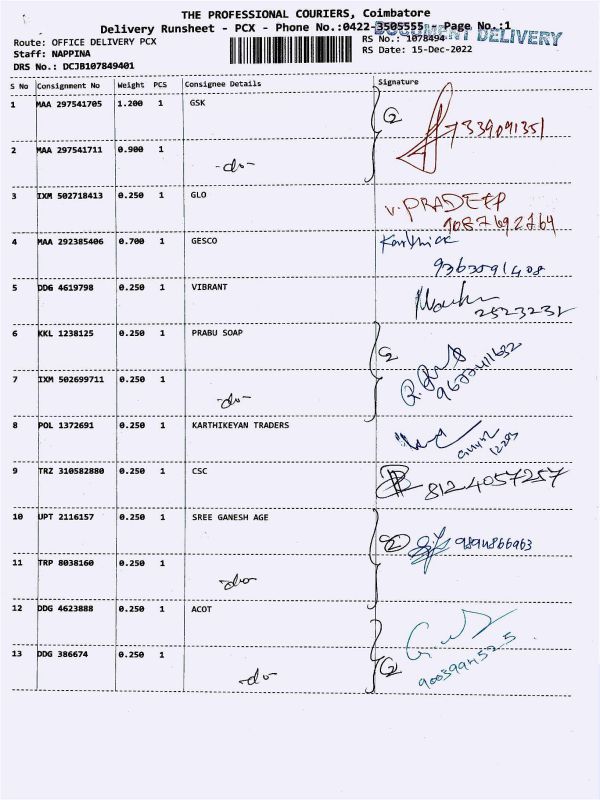 THE PROFESSIONAL COURIERS, Coimbatore
Delivery Runsheet - PCX - Phone No.:0422-3505555 - Page No.:1
DOCUMENT DELIVERY
Route: OFFICE DELIVERY PCX
RS No.: 1078494
Staff: NAPPINA
RS Date: 15-Dec-2022
DRS No.: DCJB107849401
S No Consignment No Weight PCS Consignee Details Signature
1 MAA 297541705 1.200 1 GSK 2 7339091351
2 MAA 297541711 0.900 1 -do-
3 IXM 502718413 0.250 1 GLO V. PRADEEP
9087692764
4 MAA 292385406 0.700 1 GESCO Karthick
9363591408
5 DDG 4619798 0.250 1 VIBRANT
2523232
6 KKL 1238125 0.250 1 PRABU SOAP 2
7 IXM 502699711 0.250 1 -do-
8 POL 1372691 0.250 1 KARTHIKEYAN TRADERS
9 TRZ 310582880 0.250 1 CSC 8124057257
10 UPT 2116157 0.250 1 SREE GANESH AGE 2 9894866963
11 TRP 8038160 0.250 1 -do-
12 DDG 4623888 0.250 1 ACOT
13 DDG 386674 0.250 1 -do- 2